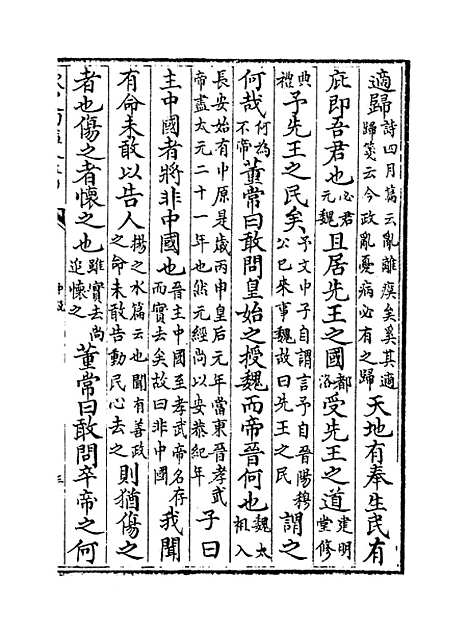 適歸詩四月篇云亂離瘼矣奚其適歸箋云今政亂憂病必有之歸天地有奉生民有
庇即吾君也心君元魏且居先王之國都洛受先王之道建明堂修
典禮予先王之民矣予文中子自謂言予自晉陽穆公已來事魏故曰先王之民謂之
何哉何為不帝董常曰敢問皇始之授魏而帝晉何也魏太祖入
長安始有中原是歲丙申皇后元年當東晉孝武帝盡太元二十一年也然元經尚以安恭紀年子曰
主中國者將非中國也晉主中國至孝武帝名存而實去矣故曰非中國我聞
有命未敢以告人揚之水篇云也聞有善政之命未敢告動民心去之則猶傷之
者也傷之者懷之也雖實去尚追懷之董常曰敢問卒帝之何